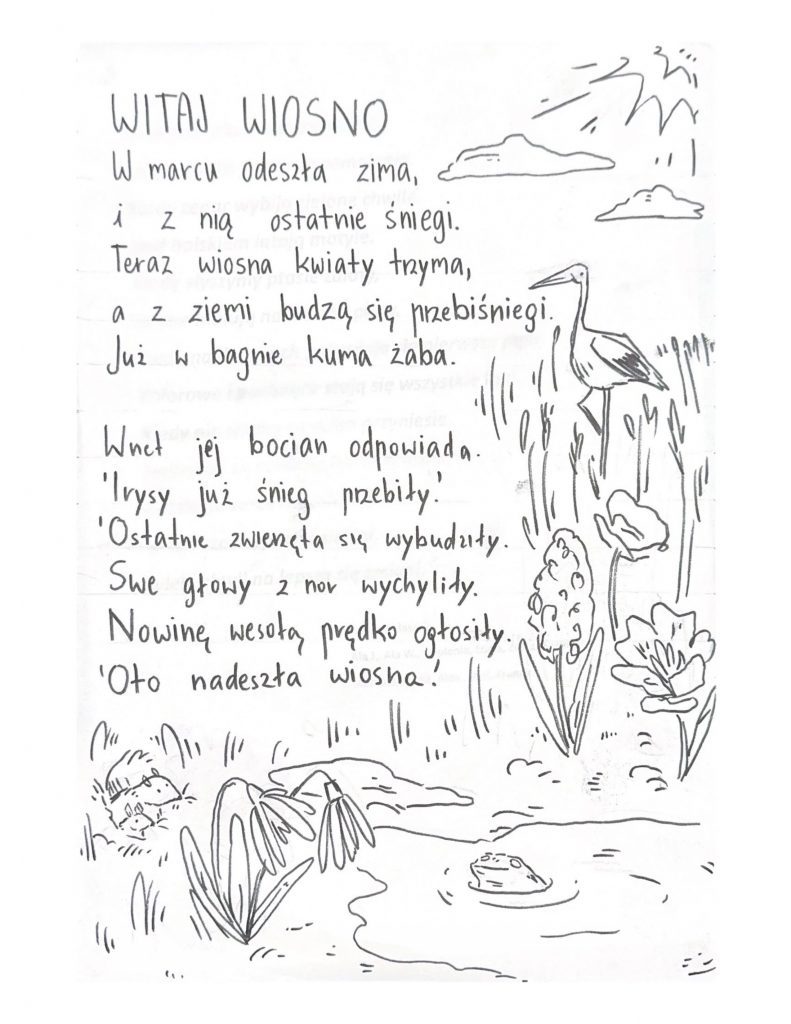 WITAJ WIOSNO
W marcu odeszła zima,
i z nią ostatnie śniegi.
Teraz wiosna kwiaty trzyma,
a z ziemi budzą się przebiśniegi.
Już w bagnie kuma żaba.
Wnet jej bocian odpowiada.
'Irysy już śnieg przebiły.'
'Ostatnie zwierzęta się wybudziły.
Swe głowy z nor wychyliły.
Nowinę wesołą prędko ogłosiły.
'Oto nadeszła wiosna.'